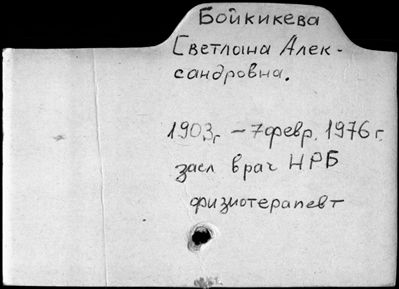 Бойкикева
Светлана Алек-
сандровна.
1903г – 7 февр. 1976 г.
засл врач НРБ
физиотерапевт